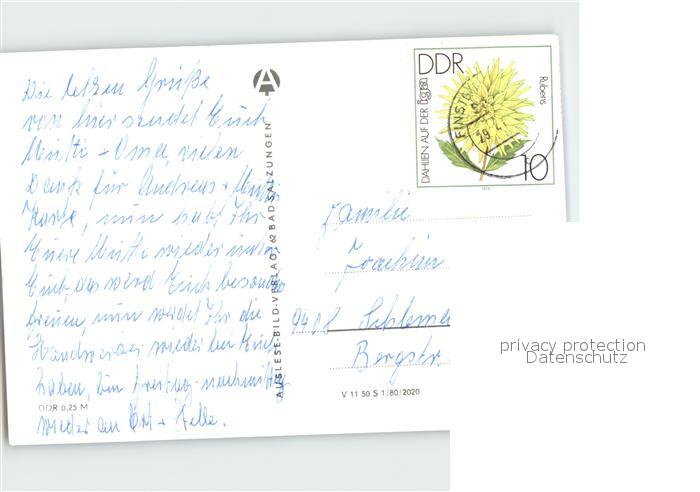 Die letzen Grüße
von hier sendet Euch
Mutti - Oma, vielen
Dank für Andreas +
Karte, nun habt Ihr
Eure Mutti wieder
Euch, das wird Euch besonders
freuen, nun werdet Ihr die
Handwerker wieder bei Euch
haben, bin Freitag-nachmittag
wieder an Ort + Stelle.
DDR 0,25 M
AUSLESE-BILD-VERLAG, 62 BAD SALZUNGEN
DDR
DAHLIEN AUF DER
Rubens
10
1979
Familie
Joachim
9408 Schlema
Bergstr.
V 11 50 S 1/80/2020
privacy protection
Datenschutz